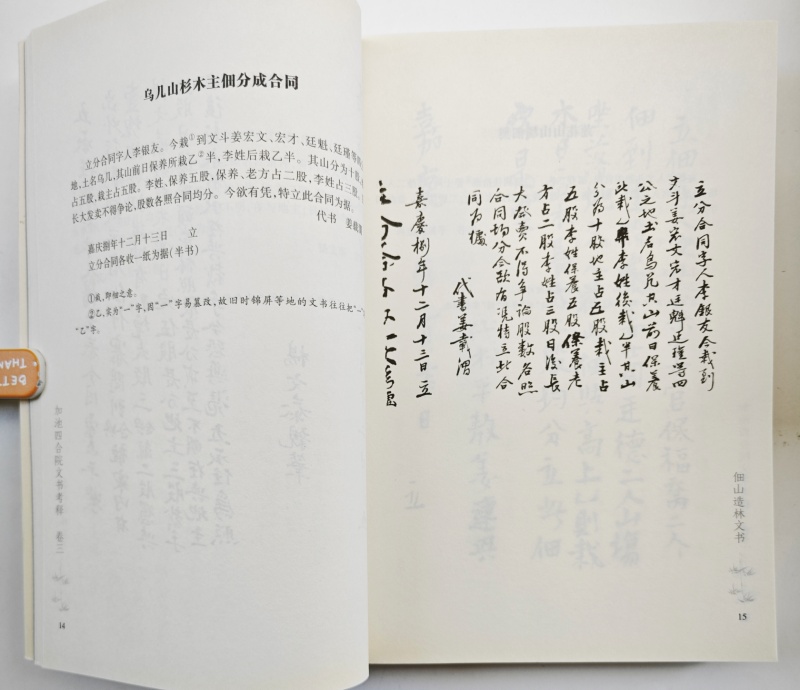 乌儿山杉木主佃分成合同
立分合同字人李银友。今栽①到文斗姜宏文、宏才、廷魁、廷瑾等
地,土名乌儿,其山前日保养所栽乙②半,李姓后栽乙半。其山分为十股,
占五股,栽主占五股。李姓、保养五股,保养、老方占二股,李姓占三股。
长大发卖不得争论,股数各照合同均分。今欲有凭,特立此合同为据。
代书 姜载渭
嘉庆捌年十二月十三日 立
立分合同各收一纸为据(半书)
①栽,即租之意。
②乙,实为“一”字,因“一”字易篡改,故旧时锦屏等地的文书往往把“一”
“乙”字。
加池四合院文书考释 卷三
14
立分合同字人李银友今栽到
文斗姜宏文宏才廷魁廷瑾等四
公之地土名乌㞎其山前日保养
所栽乙半李姓后栽乙半其山
分为十股地主占五股栽主占
五股李姓保养五股保养老
方占二股李姓占三股日后长
大发卖不得争论股数各照
合同均分今欲有凭特立此合
同为据
代书姜载渭
嘉庆捌年十二月十三日立
佃山造林文书
15
BETT
THAN